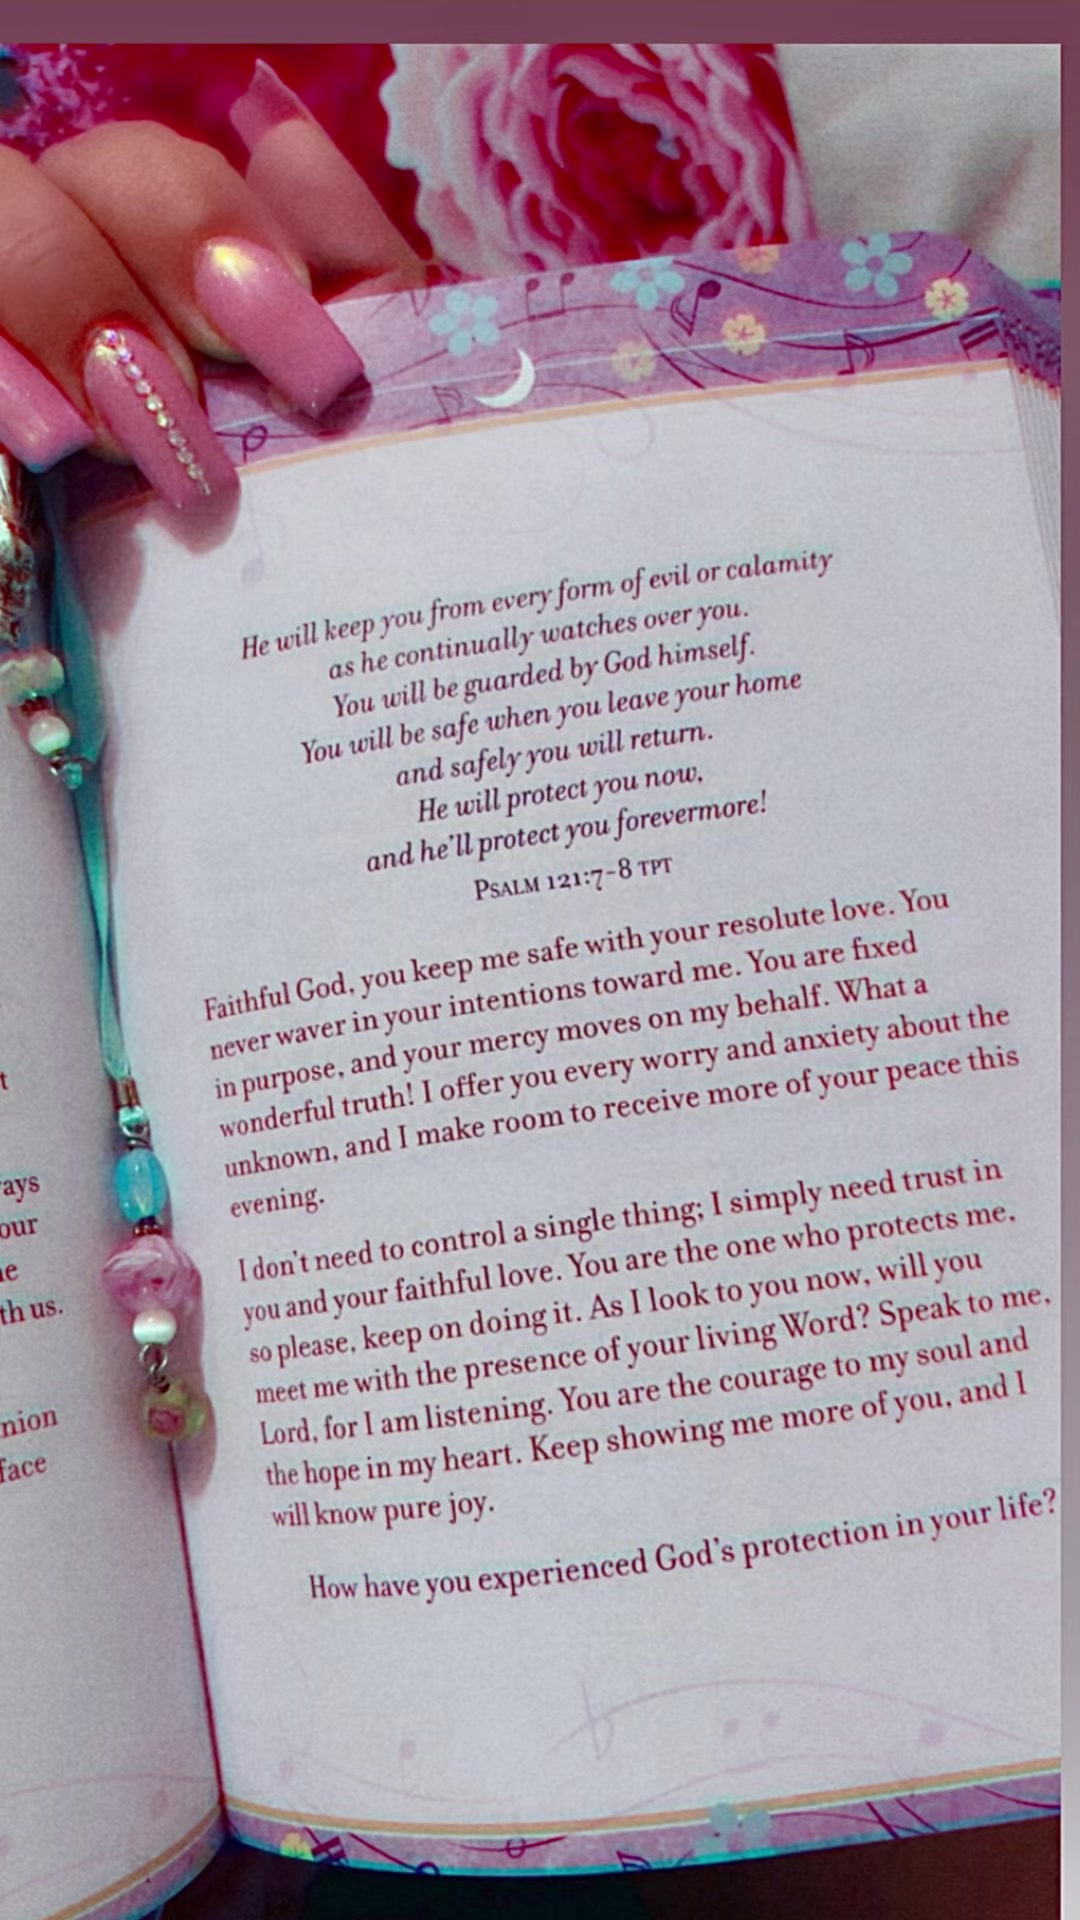 He will keep you from every form of evil or calamity
as he continually watches over you.
You will be guarded by God himself.
You will be safe when you leave your home
and safely you will return.
He will protect you now,
and he'll protect you forevermore!
PSALM 121:7-8 TPT
Faithful God, you keep me safe with your resolute love. You
never waver in your intentions toward me. You are fixed
in purpose, and your mercy moves on my behalf. What a
wonderful truth! I offer you every worry and anxiety about the
unknown, and I make room to receive more of your peace this
evening.
I don't need to control a single thing; I simply need trust in
you and your faithful love. You are the one who protects me,
so please, keep on doing it. As I look to you now, will you
meet me with the presence of your living Word? Speak to me,
Lord, for I am listening. You are the courage to my soul and
the hope in my heart. Keep showing me more of you, and I
will know pure joy.
How have you experienced God's protection in your life?